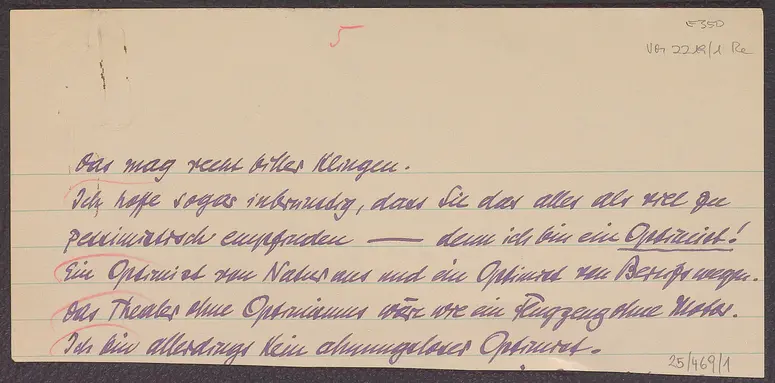 5
E35D
Vor 2219/1 Re
Das mag recht bitter klingen.
Ich hoffe sogar inbrünstig, dass Sie das alles als viel zu
pessimistisch empfinden — denn ich bin ein Optimist!
Ein Optimist von Natur aus und ein Optimist von Berufs wegen.
Das Theater ohne Optimismus wäre wie ein Flugzeug ohne Motor.
Ich bin allerdings kein ahnungsloser Optimist.
25/469/1